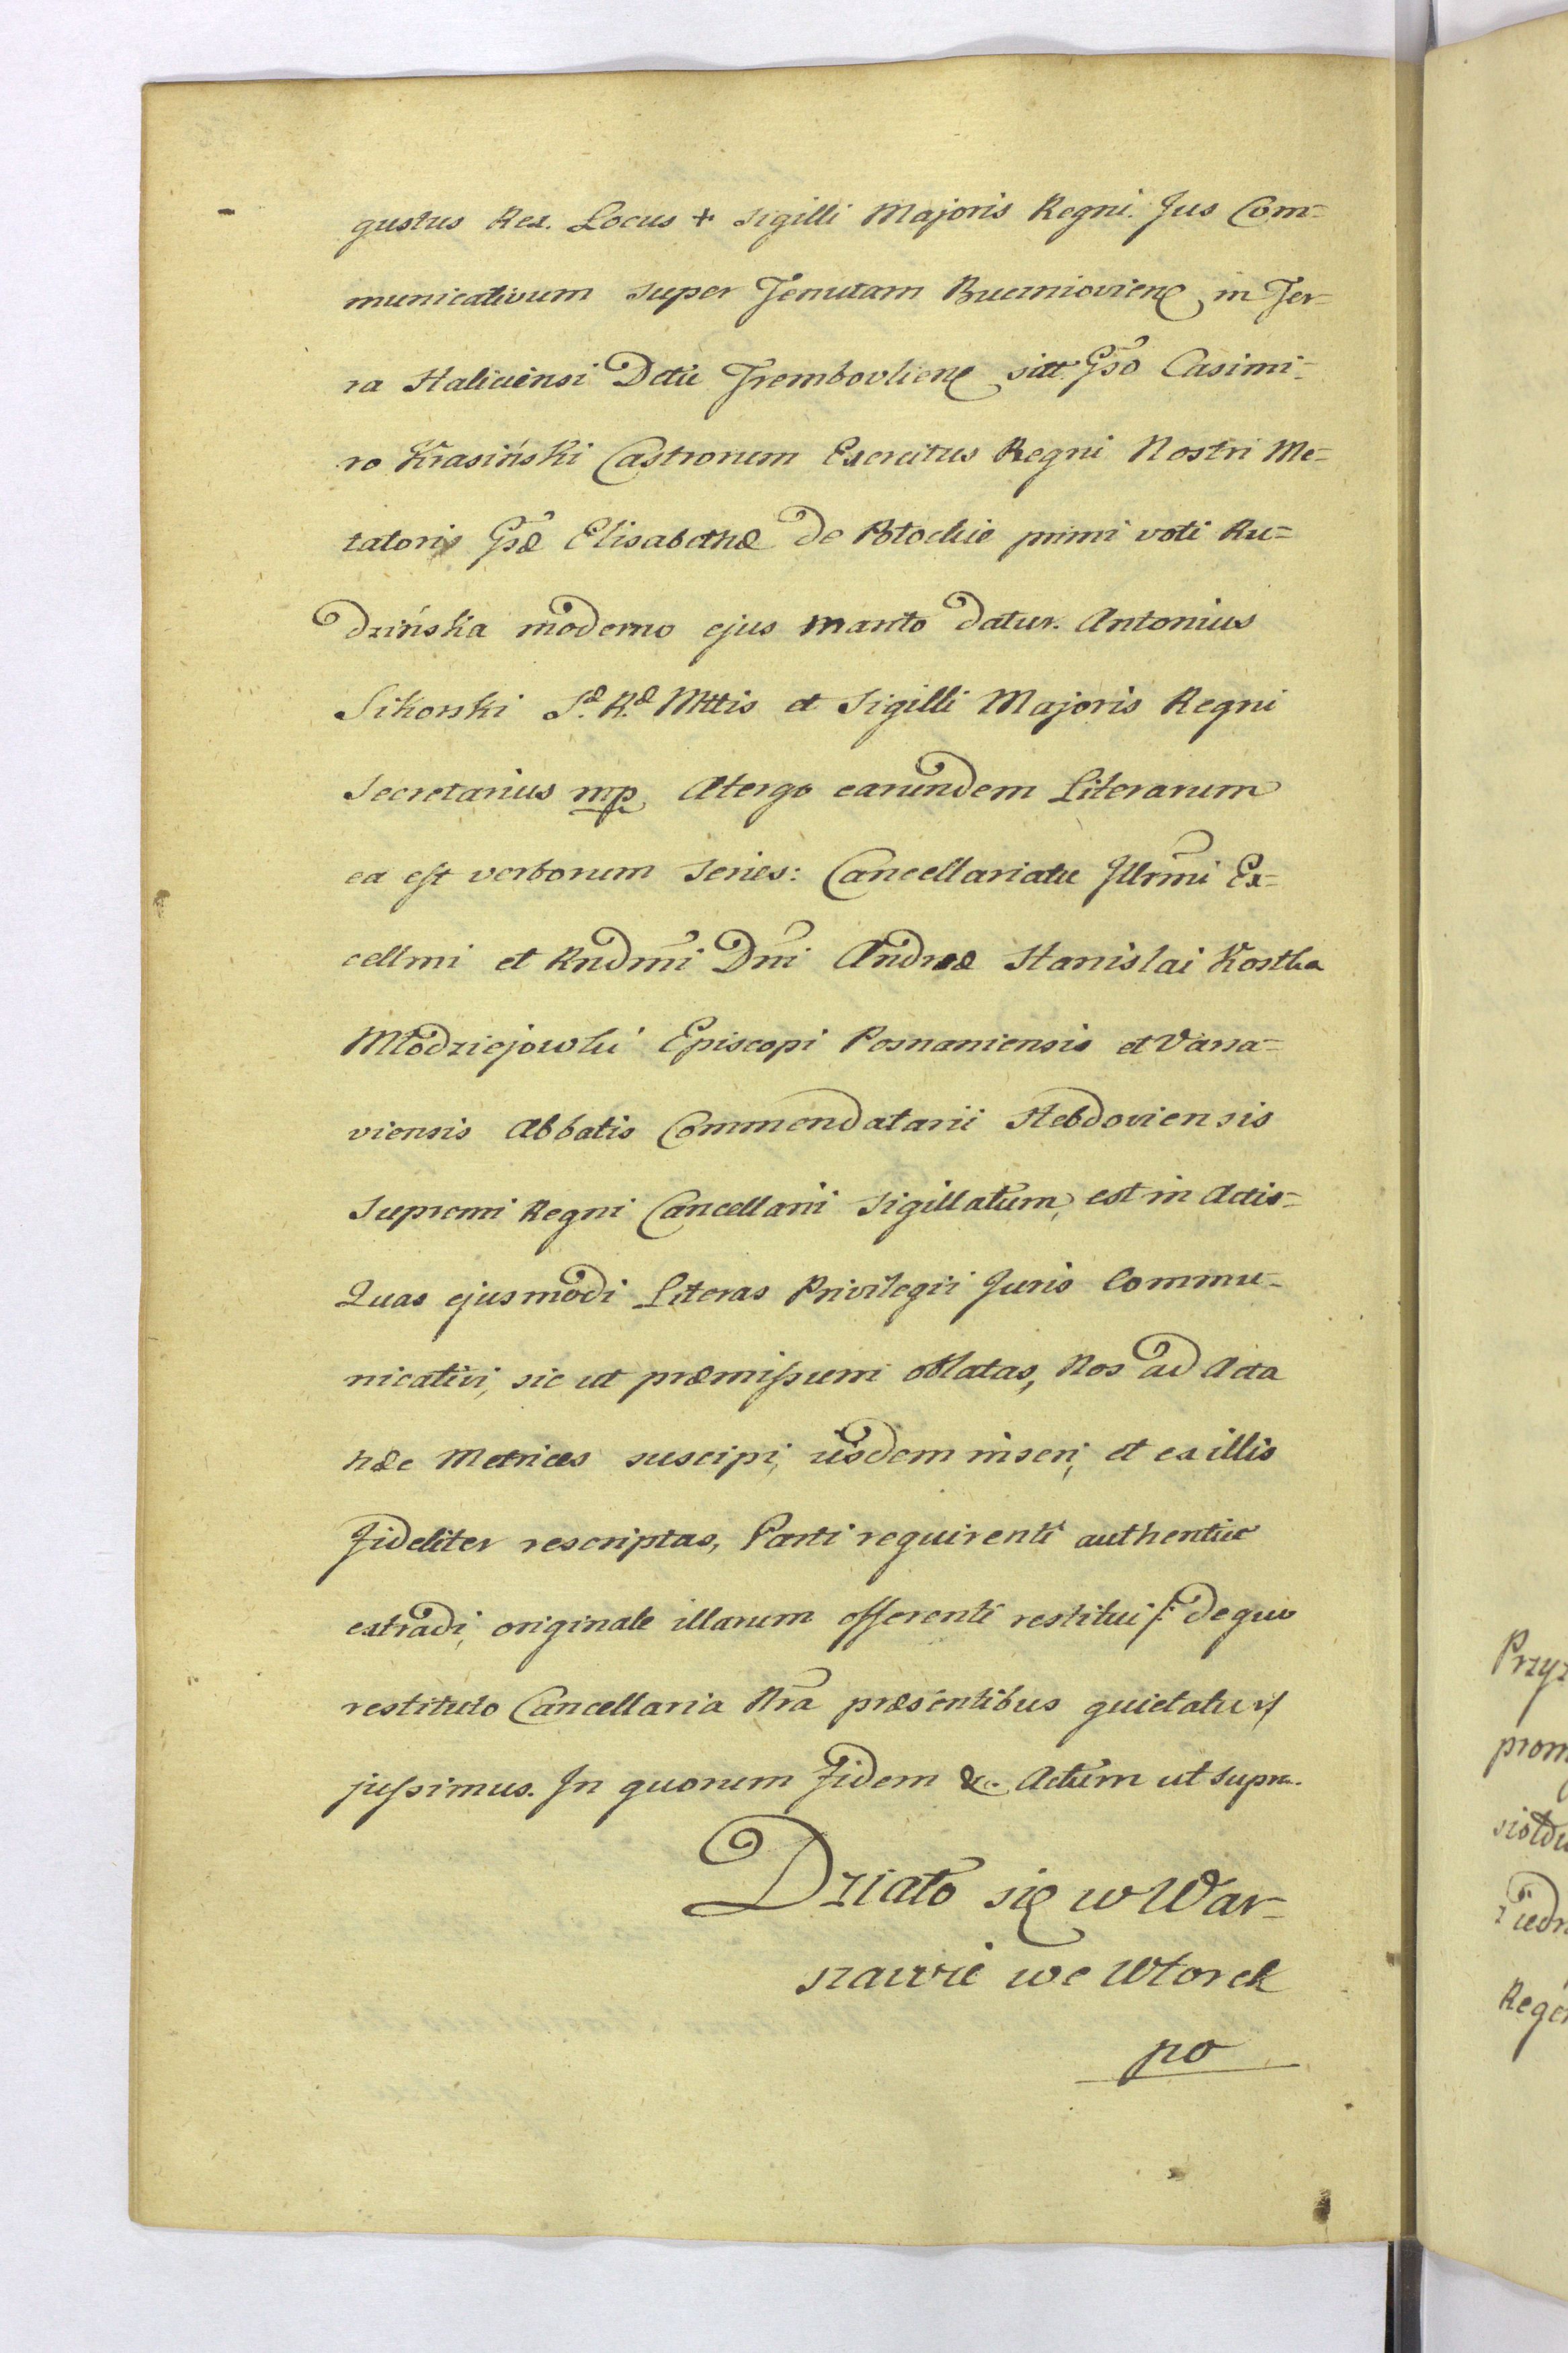 gustus Rex. Locus + Sigilli Majoris Regni. Jus Com=
municativum super Tenutam Bucniovien in Ter=
ra Haliciensi Dctu Trembovlien sitt Gso Casimi=
ro Krasiński Castrorum Exercitus Regni Nostri Me=
tatoris Gsæ Elisabethæ De Potockie primi voti Ru=
dzińska moderno ejus marito datur. Antonius
Sikorski Sæ. Ræ. Mttis et Sigilli Majoris Regni
Secretarius mp. Atergo earundem Literarum
ea est verborum series: Cancellariatu Illrmi Ex=
cellmi et Rndmi Dni Andreæ Stanislai Kostka
Młodziejowski Episcopi Posnaniensis et Varsa=
viensis Abbatis Commendatarii Hebdoviensis
Supremi Regni Cancellarii Sigillatum, est in Actis=
Quas ejusmodi Literas Privilegii Juris Commu=
nicativi, sic ut præmissum oblatas, Nos ad Acta
hæc Metrices suscipi, iisdem inseri, et ex illis
fideliter rescriptas, Parti requirenti authentice
extradi, originale illarum offerenti restitui /: de quo
restituto Cancellaria Nra præsentibus quietatur :/
jussimus. In quorum Fidem &c. Actum ut supra.
Działo się w War=
szawie we Wtorek
po
Przyz
prom
Rege